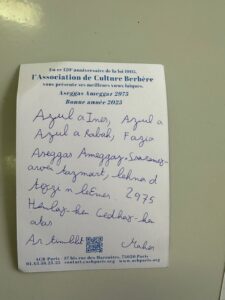 En ce 120e anniversaire de la loi 1905,
l'Association de Culture Berbère
vous présente ses meilleurs voeux laïques.
Aseggas Ameggaz 2975
Bonne année 2025
Azul a Ines, Azul a
Azul a Rabah, Fazia
Aseggas Ameggaz,
tazmart, lehna d
n leɛmer. 2975
atas
Ar timlilt Maher
ACB-Paris 37 bis rue des Maronites, 75020 Paris
01.43.58.23.25 contact.acbparis.org www.acbparis.org